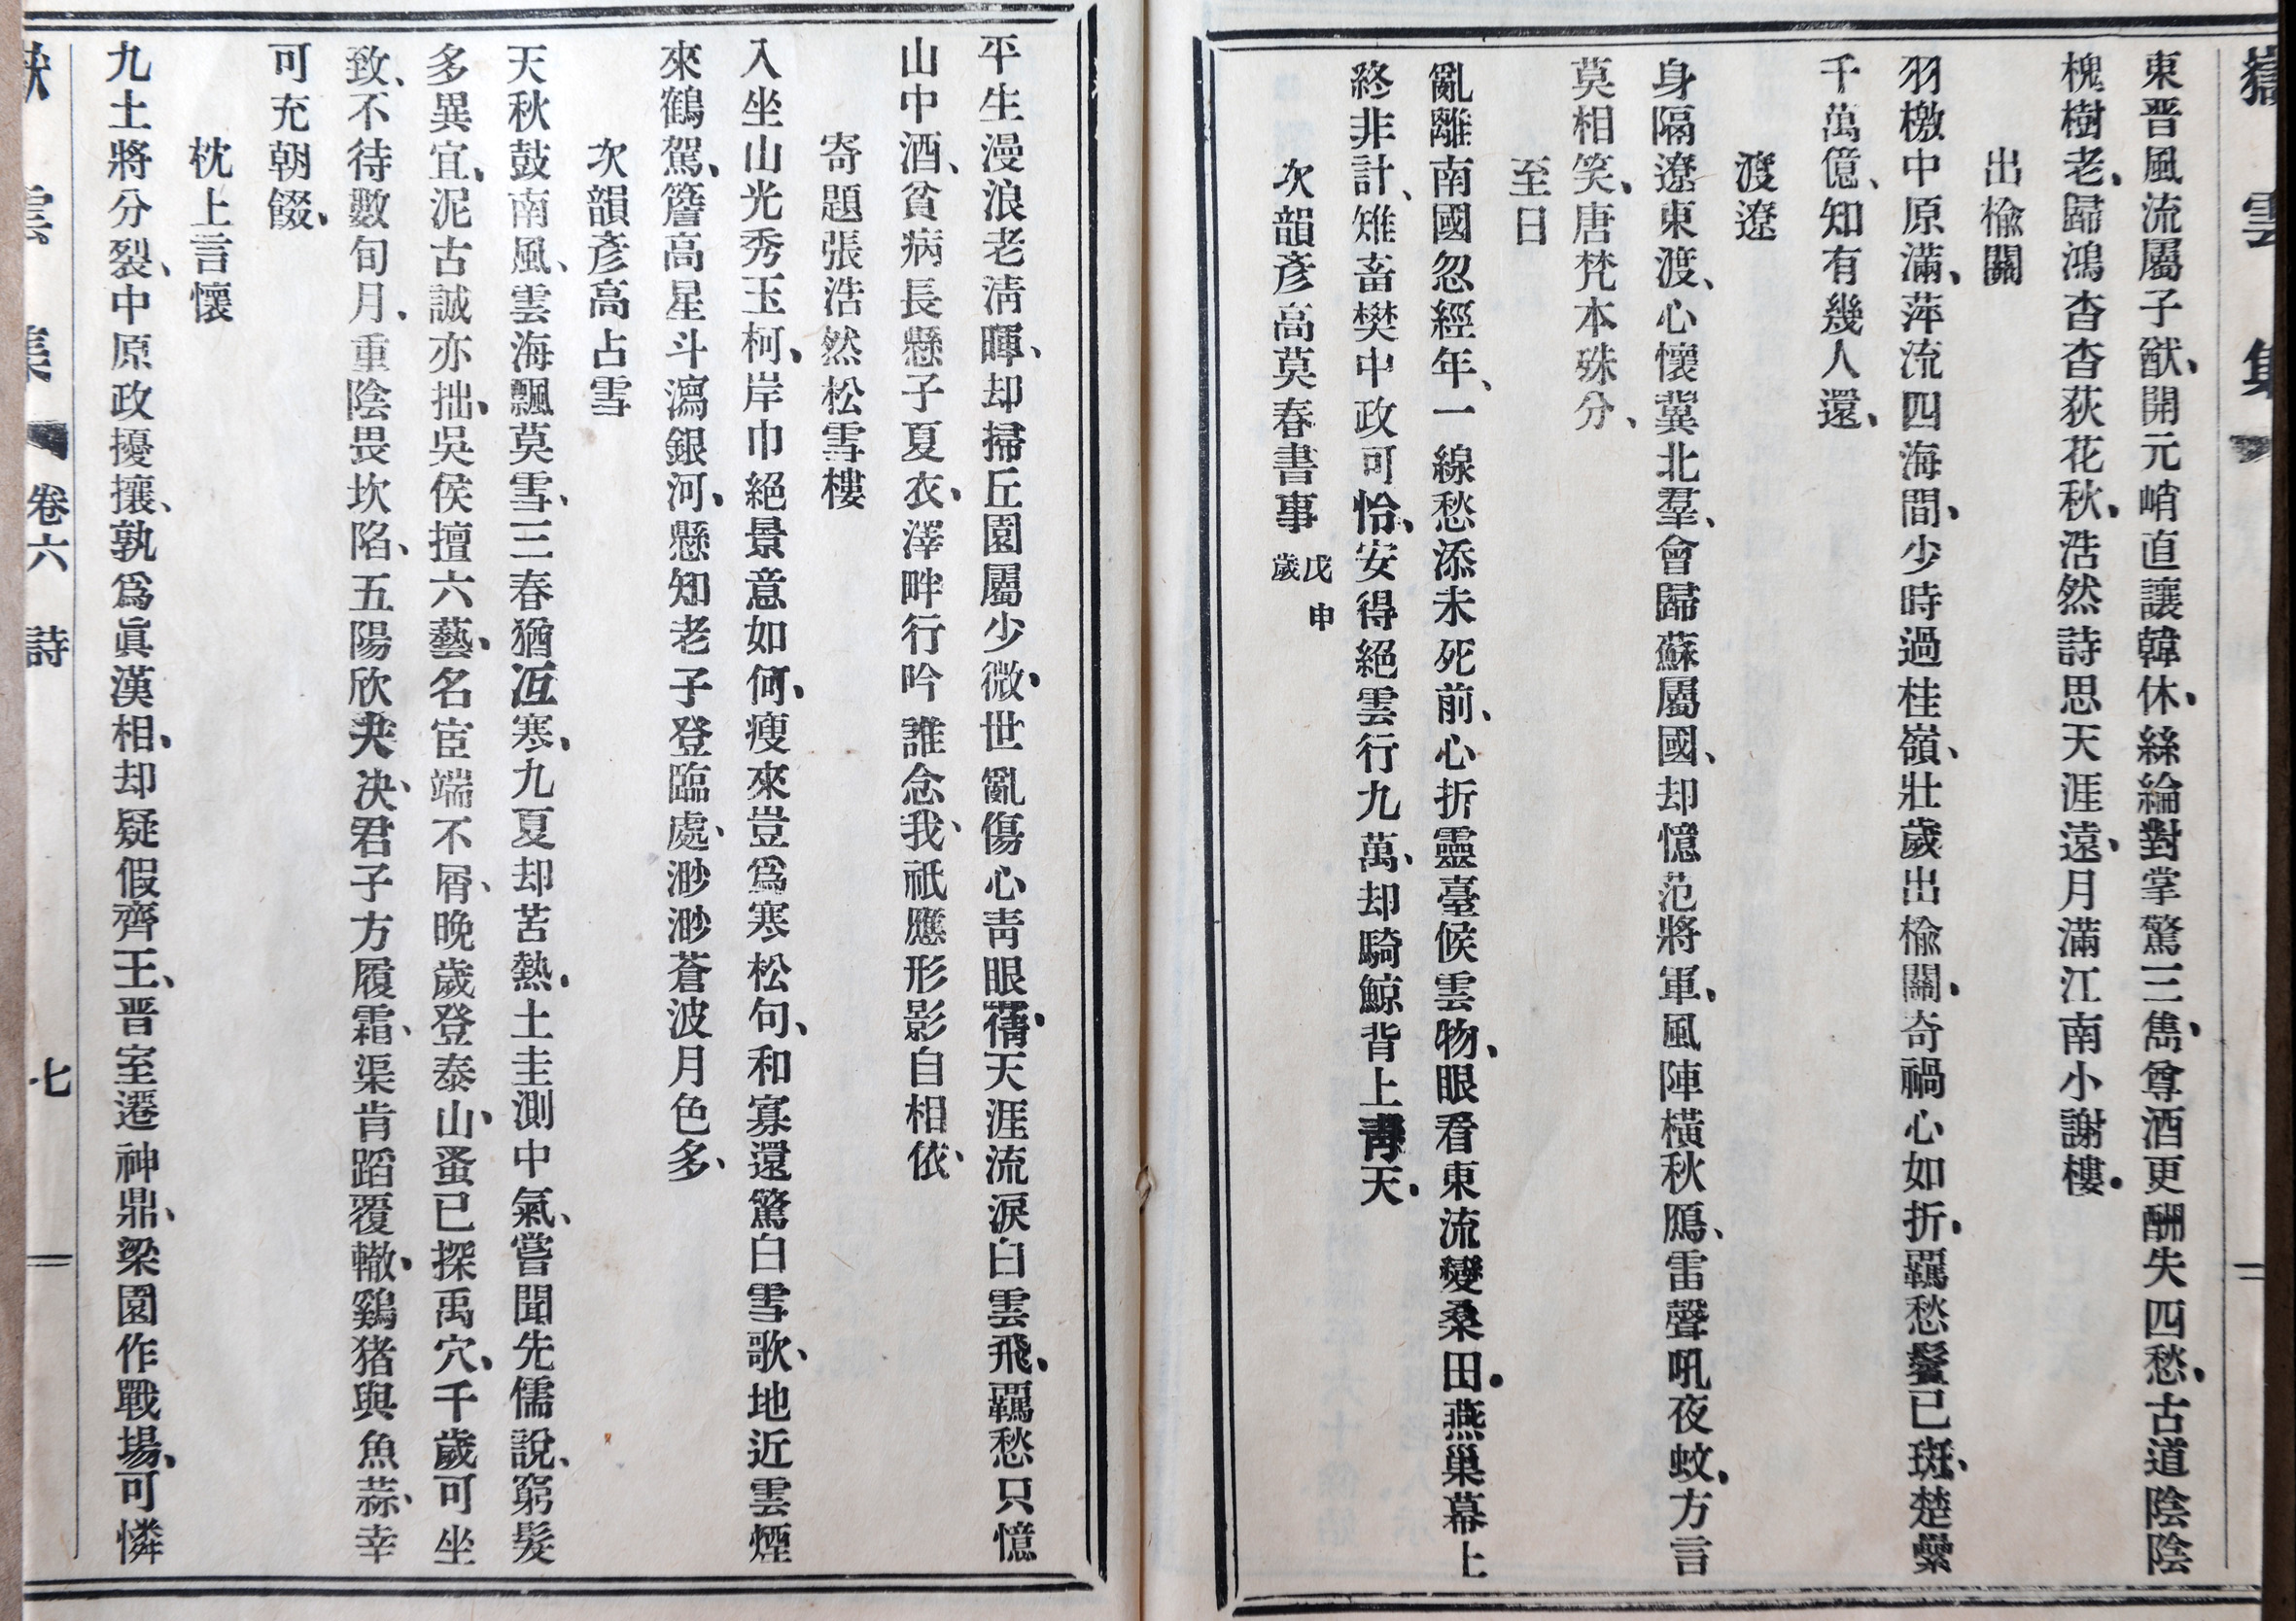 嶽雲集
東晋風流屬子猷、開元峭直讓韓休、絲綸對掌驚三雋、尊酒更酬失四愁、古道陰陰
槐樹老、歸鴻杳杳荻花秋、浩然詩思天涯遠、月滿江南小謝樓、
出榆關
羽檄中原滿、萍流四海間、少時過桂嶺、壯歲出榆關、奇禍心如折、羈愁鬢已斑、楚纍
千萬億、知有幾人還、
渡遼
身隔遼東渡、心懷冀北羣、會歸蘇屬國、却憶范將軍、風陣橫秋鴈、雷聲吼夜蚊、方言
莫相笑、唐梵本殊分、
至日
亂離南國忽經年、一線愁添未死前、心折靈臺候雲物、眼看東流變桑田、燕巢幕上
終非計、雉畜樊中政可怡、安得絕雲行九萬、却騎鯨背上靑天、
次韻彥高莫春書事 戊申歲
平生漫浪老淸暉、却掃丘園屬少微、世亂傷心靑眼舊、天涯流淚白雲飛、羈愁只憶
山中酒、貧病長懸子夏衣、澤畔行吟誰念我、祇應形影自相依、
寄題張浩然松雪樓
入坐山光秀玉柯、岸巾絕景意如何、瘦來豈爲寒松句、和寡還驚白雪歌、地近雲煙
來鶴駕、簷高星斗瀉銀河、懸知老子登臨處、渺渺蒼波月色多、
次韻彥高占雪
天秋鼓南風、雲海飄莫雪、三春猶沍寒、九夏却苦熱、土圭測中氣、嘗聞先儒說、窮髮
多異宜、泥古誠亦拙、吳侯擅六藝、名宦端不屑、晚歲登泰山、蚤已探禹穴、千歲可坐
致、不待數旬月、重陰畏坎陷、五陽欣夬决、君子方履霜、渠肯蹈覆轍、鷄猪與魚蒜、幸
可充朝餟、
枕上言懷
九土將分裂、中原政擾攘、孰爲眞漢相、却疑假齊王、晋室遷神鼎、梁園作戰場、可憐
雲集 卷六 詩 七